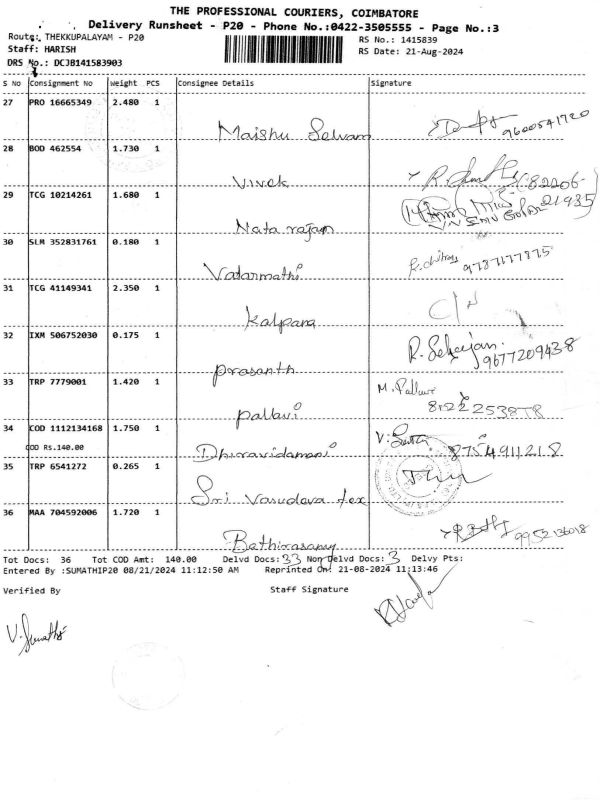 THE PROFESSIONAL COURIERS, COIMBATORE
Delivery Runsheet - P20 - Phone No.:0422-3505555 - Page No.:3
Route: THEKKUPALAYAM - P20
RS No.: 1415839
Staff: HARISH
RS Date: 21-Aug-2024
DRS No.: DCJB141583903
S No Consignment No Weight PCS Consignee Details Signature
27 PRO 16665349 2.480 1
Maishu Selvam 9600541720
28 BOD 462554 1.730 1
Vivek 82206-
29 TCG 10214261 1.680 1
21935
Natarajan
30 SLM 352831761 0.180 1
Vatarmathi 9787177875
31 TCG 41149341 2.350 1
Kalpana
32 IXM 506752030 0.175 1
Prasanth 9677209438
33 TRP 7779001 1.420 1
M. Pallavi
Pallavi
34 COD 1112134168 1.750 1
COD Rs.140.00
Dhiravidamani 8754911218
35 TRP 6541272 0.265 1
Sri Vasudeva tex
36 MAA 704592006 1.720 1
Bathirasamy 9952136018
Tot Docs: 36 Tot COD Amt: 140.00 Delvd Docs: 33 Non Delvd Docs: 3 Delvy Pts:
Entered By :SUMATHIP20 08/21/2024 11:12:50 AM Reprinted On: 21-08-2024 11:13:46
Verified By Staff Signature
V. Sumathi